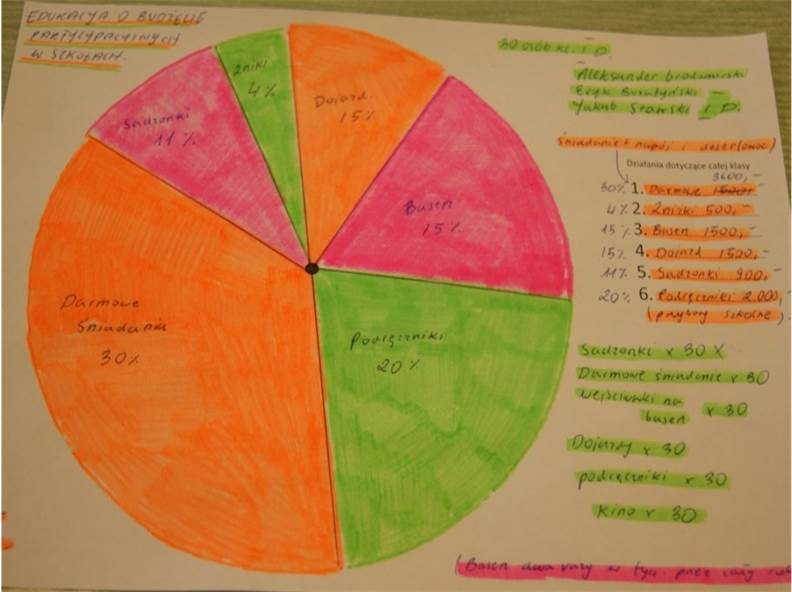 EDUKACJA O BUDŻECIE
PARTYCYPACYJNYCH
W SZKOŁACH.
Zniki
4%
Dojazd
15%
Sadzonki
11%
Basen
15%
Darmowe
Śniadania
30%
Podręczniki
20%
30 osób kl. I D.
Aleksander
Eryk
Jakub I D.
Śniadanie + napój i deser (owoc)
Działania dotyczące całej klasy
3600,-
30% 1. Darmowe
4% 2. Zniżki 500,-
15% 3. Basen 1500,-
15% 4. Dojazd 1500,-
11% 5. Sadzonki 900,-
20% 6. Podręczniki 2.000,-
(przybory szkolne)
Sadzonki x 30 X
Darmowe śniadanie x 30
Wejściówki na
basen x 30
Dojazdy x 30
podręczniki x 30
Kino x 30
(Basen dwa razy w tyg. przez cały